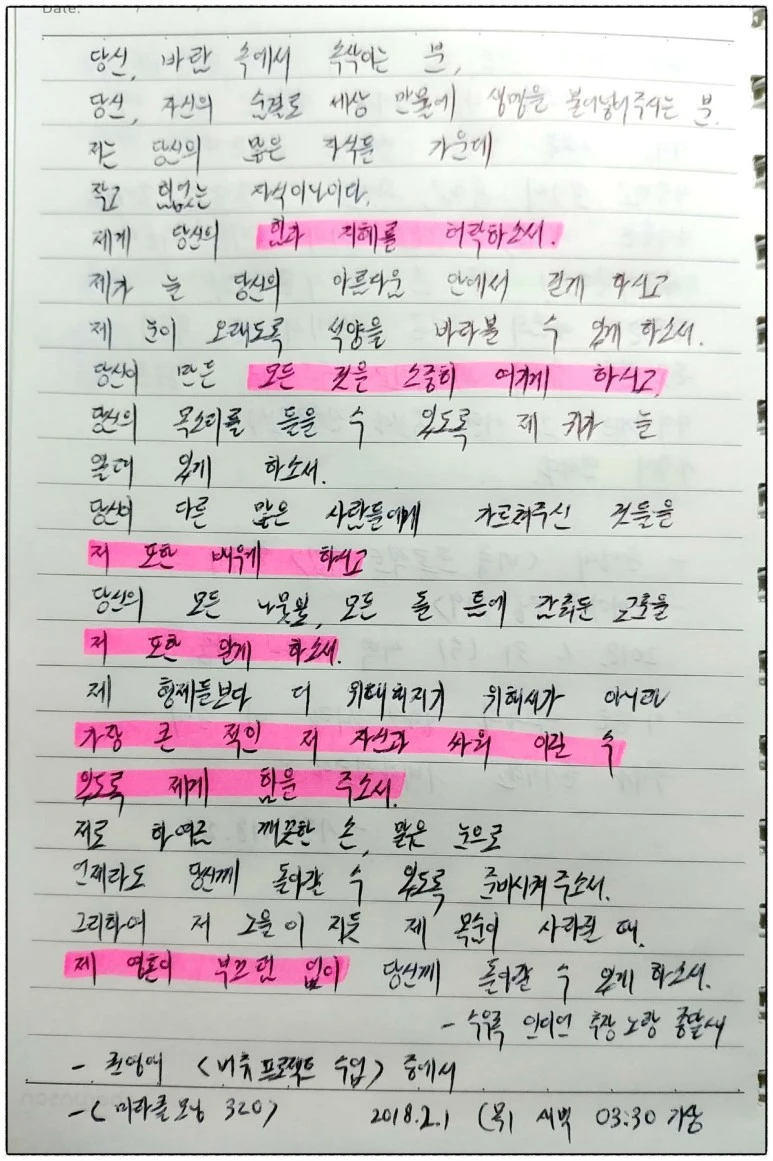 Date:
당신, 바람 속에서 속삭이는 분,
당신, 자신의 숨결로 세상 만물에 생명을 불어넣어주시는 분.
저는 당신의 많은 자식들 가운데
작고 힘없는 자식이니이다.
제게 당신의 힘과 지혜를 허락하소서.
제가 늘 당신의 아름다움 안에서 걷게 하시고
제 눈이 오래도록 석양을 바라볼 수 있게 하소서.
당신이 만든 모든 것을 소중히 여기게 하시고
당신의 목소리를 들을 수 있도록 제 귀가 늘
열려 있게 하소서.
당신이 다른 많은 사람들에게 가르쳐주신 것들을
저 또한 배우게 하시고
당신의 모든 나뭇잎, 모든 돌 틈에 감춰둔 교훈을
저 또한 알게 하소서.
제 형제들보다 더 위대해지기 위해서가 아니라
가장 큰 적인 저 자신과 싸워 이길 수
있도록 제게 힘을 주소서.
저로 하여금 깨끗한 손, 맑은 눈으로
언제라도 당신께 돌아갈 수 있도록 준비시켜주소서.
그리하여 저 노을이 지듯 제 목숨이 사라질 때,
제 영혼이 부끄럼 없이 당신께 돌아갈 수 있게 하소서.
- 수우족 인디언 추장 노랑 종달새
- 권영애 <버츄프로젝트 수업> 중에서
-< 미라클모닝 320> 2018.2.1 (목) 새벽 03:30 기상